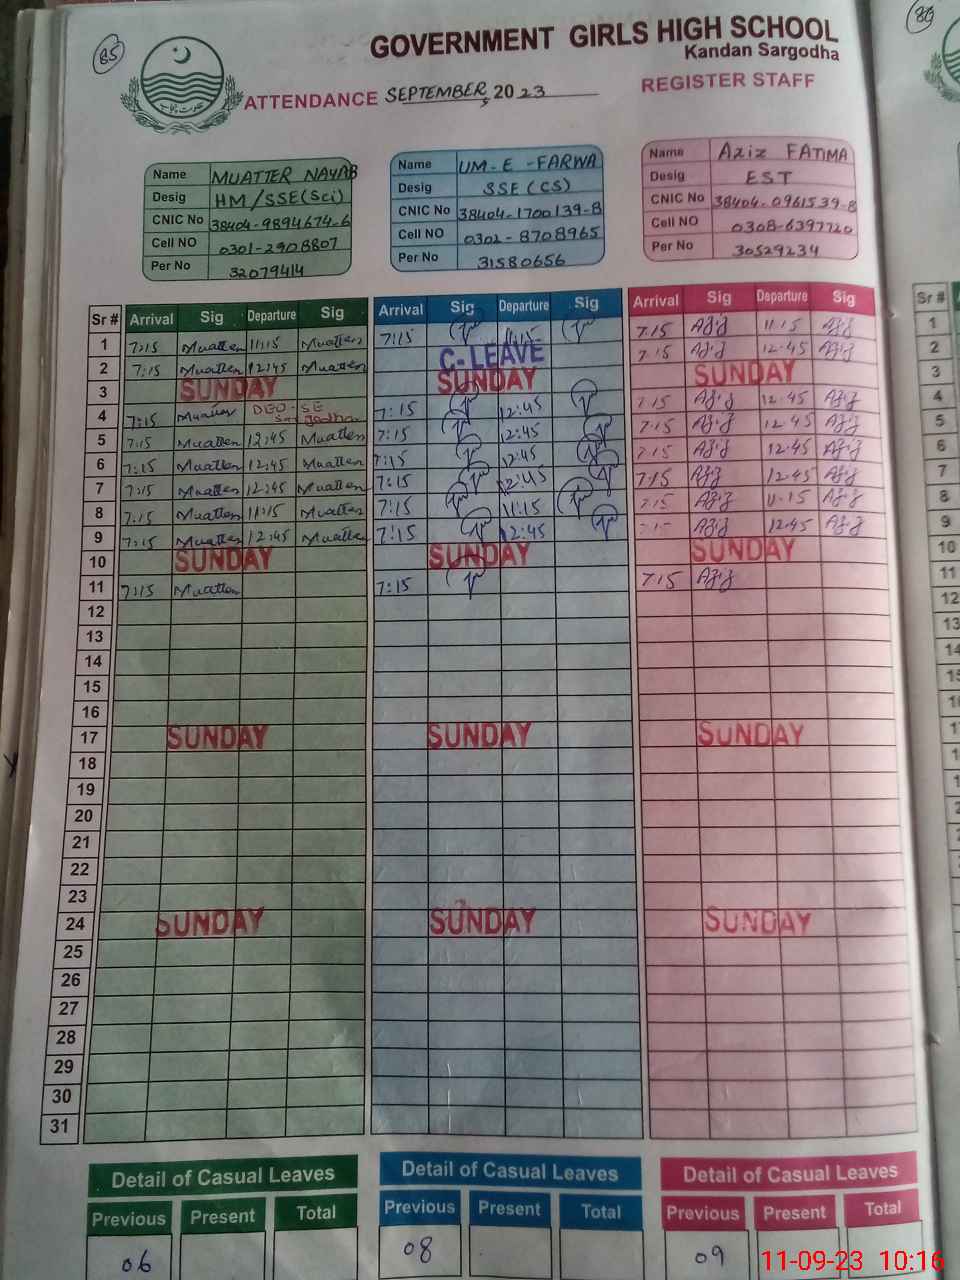 85
GOVERNMENT GIRLS HIGH SCHOOL
Kandan Sargodha
ATTENDANCE SEPTEMBER, 2023 REGISTER STAFF
حکومت پنجاب
Name MUATTER NAYAB
Desig HM/SSE(Sci)
CNIC No 38404-9894674-6
Cell NO 0301-2908807
Per No 32079414
Name UM-E-FARWA
Desig SSE (CS)
CNIC No 38404-1700139-8
Cell NO 0302-8708965
Per No 31580656
Name Aziz FATIMA
Desig EST
CNIC No 38404-0961539-8
Cell NO 0308-6397720
Per No 30529234
Sr # Arrival Sig Departure Sig Arrival Sig Departure Sig Arrival Sig Departure Sig Sr #
1 7:15 Muatter 11:15 Muatter 7:15 11:15 7:15 11:15 1
2 7:15 Muatter 12:45 Muatter C-LEAVE 7:15 12.45 2
3 SUNDAY SUNDAY SUNDAY 3
4 7:15 DEO-SE 7:15 12:45 7:15 12.45 4
5 7:15 Muatter 12:45 Muatter 7:15 12:45 7:15 12.45 5
6 7:15 Muatter 12:45 Muatter 7:15 12:45 7:15 12.45 6
7 7:15 Muatter 12:45 Muatter 7:15 12:45 7:15 12.45 7
8 7:15 Muatter 11:15 Muatter 7:15 11:15 7:15 11.15 8
9 7:15 Muatter 12:45 Muatter 7:15 12:45 12.45 9
10 SUNDAY SUNDAY SUNDAY 10
11 7:15 Muatter 7:15 7:15 11
12 12
13 13
14 14
15
16
17 SUNDAY SUNDAY SUNDAY
18
19
20
21
22
23
24 SUNDAY SUNDAY SUNDAY
25
26
27
28
29
30
31
Detail of Casual Leaves Detail of Casual Leaves Detail of Casual Leaves
Previous Present Total Previous Present Total Previous Present Total
06 08 09
11-09-23 10:16